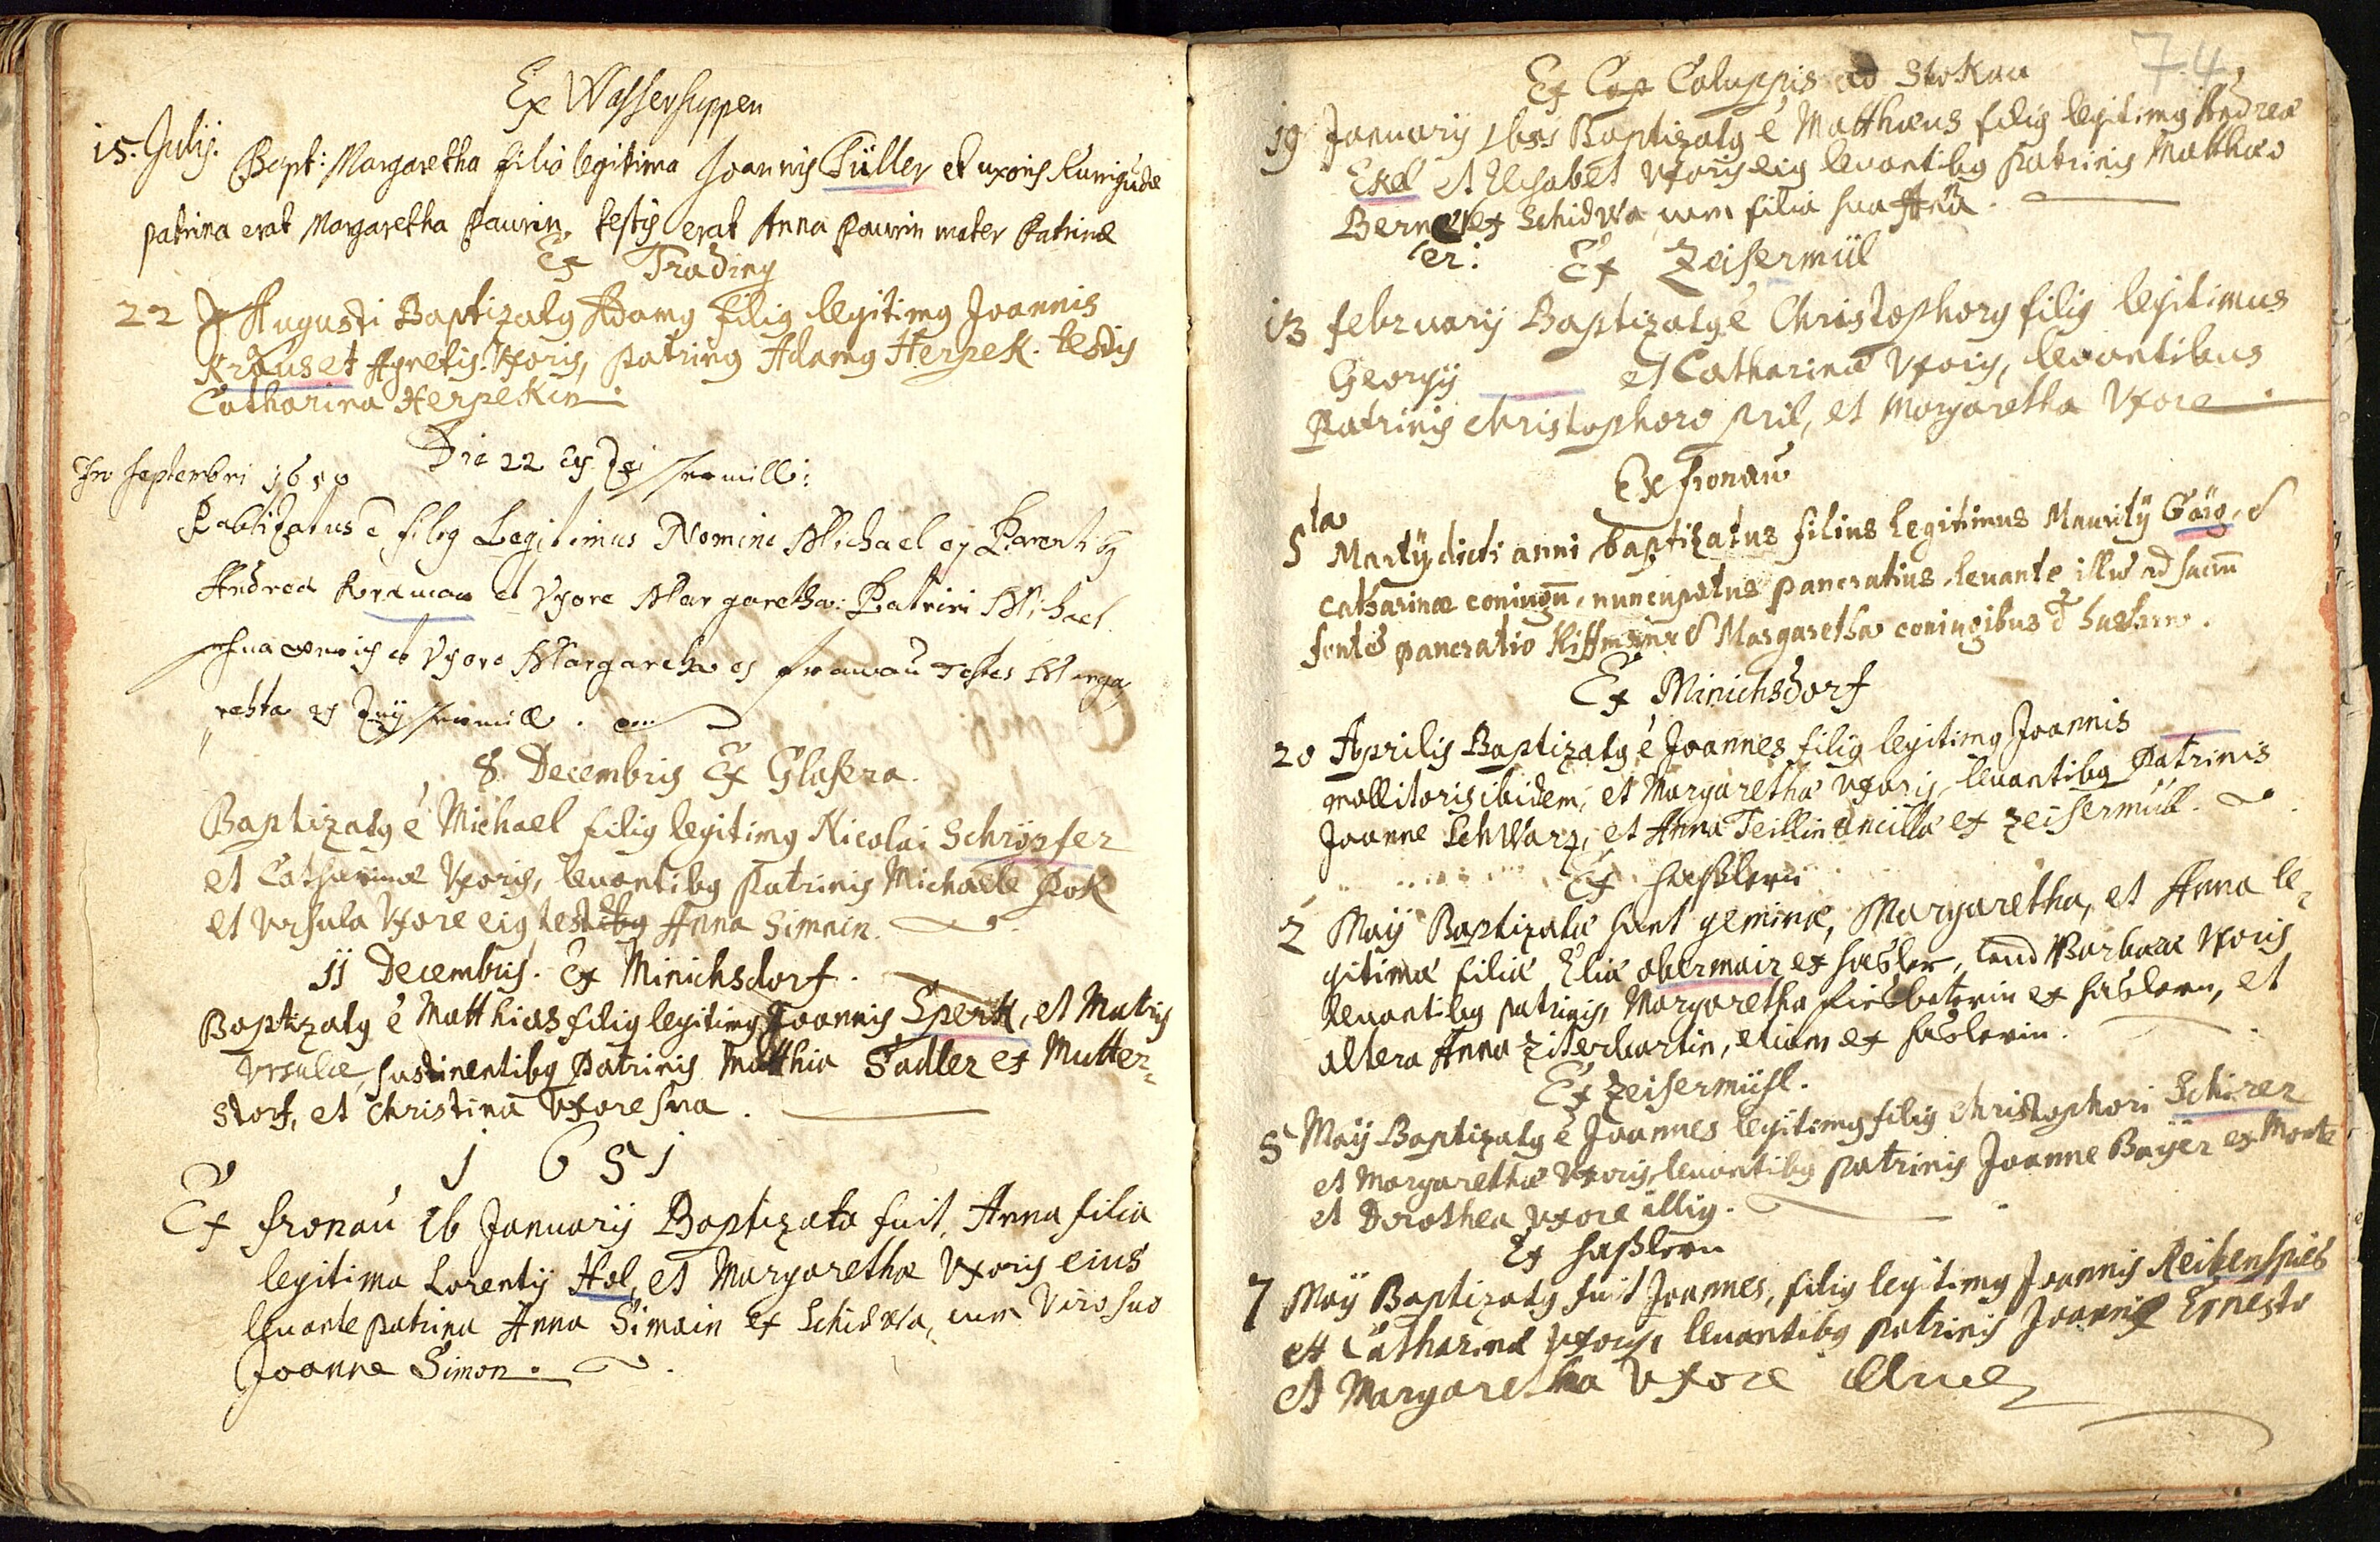 Ex Wassersuppen
15. Julij. Bapt: Margaretha filia legitima Joannis Püller et uxoris Kunigūdæ
patrina erat Margaretha Paurin, testis erat Anna Paurin mater Patrinæ
Ex Trading
22 Augusti Baptizatq Adamq filiq legitimq Joannis
Kraus et Agnetis Vxoris, patrinq Adamq Herpek. testis
Catharina Herpekin
In septembri 1650 Die 22 ex
filiq Legitimus Nomine Michael ex Parentibq
Andrea et Vxore Margaretha: Patrini Michael
et Vxore Margaretha ex Testes Marga
retha ex
8. Decembris Ex Glasera.
Baptizatq ē Michael filiq legitimq Nicolai Schröpfer
et Catharinæ Vxoris, leuantibq Patrinis Michaele Pok
et Vrsula Vxore eiq testibq Anna Simnin.
11 Decembris. Ex Minichsdorf.
Baptizatq ē Matthias filiq legitimq Joannis Sperk, et Matris
Vrsulæ, sustinentibq Patrinis Matthia Sadler ex Mutter=
storf, et Christina Vxore sua.
1651
Ex fronau 16 Januarij Baptizata fuit, Anna filia
legitima Lorentij Hol, et Margarethæ Vxoris eius
leuante patrina Anna Simain ex Schidwa, cum Viro suo
Joanne Simon.
74
Ex Cap Caluppis ad Stokau
19 Januarij 1651 Baptizatq ē Matthæus filiq legitimq Andreæ
Exel et Elisabet Vxoris eiq leuantibq patrinis Matthæo
Berner ex Schidwa cum filia sua Aña.
er:
Ex Zeisermül
13 februarij Baptizatq ē Christophorq filiq legitimus
Georgij et Catharinæ Vxoris, leuantibus
Patrinis Christophoro Pril, et Margaretha Vxore
Ex fronau
5ta Martij dicti anni baptizatus filius legitimus Mauritij Görg, &
catharinæ coniugū, nuncupatus pancratius, leuante illū ad sacrū
fontē pancratio & Margaretha coniugibus
Ex Minichsdorf
20 Aprilis Baptizatq ē Joannes filiq legitimq Joannis
mollitoris ibidem, et Margarethæ Vxoris, leuantibq Patrinis
Joanne Schwarz, et Anna Teillin ancilla ex Zeisermüll.
Ex haßlern
2 Maij Baptizatæ sunt geminæ, Margaretha, et Anna le=
gitimæ filiæ Eliæ obermair ex hasler, Barbaræ Vxoris
leuantibq patrinis, Margaretha ex haslern, et
altera Anna Ziterbartin, etiam ex haslerin.
Ex Zeisermüsl.
5 Maij Baptizatq ē Joannes legitimq filiq Christophori Schirer
et Margarethæ Vxoris, leuantibq patrinis Joanne Bayer ex Monte
et Dorothea Vxore illiq.
Ex haßlern
7 Maij Baptizatq fuit Joannes, filiq legitimq Joannis Reitenspies
et Catharinæ Vxoris, leuantibq patrinis Joannis Ernesto
et Margaretha Vxore